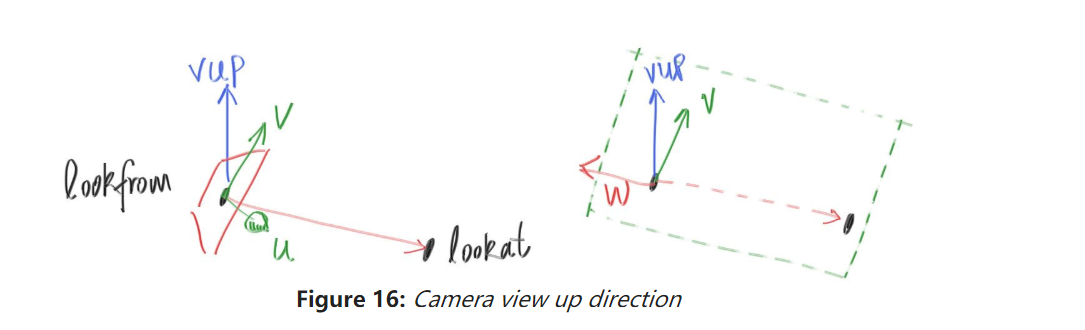 vup
v
lookfrom
u
lookat
vup
v
w
Figure 16: Camera view up direction